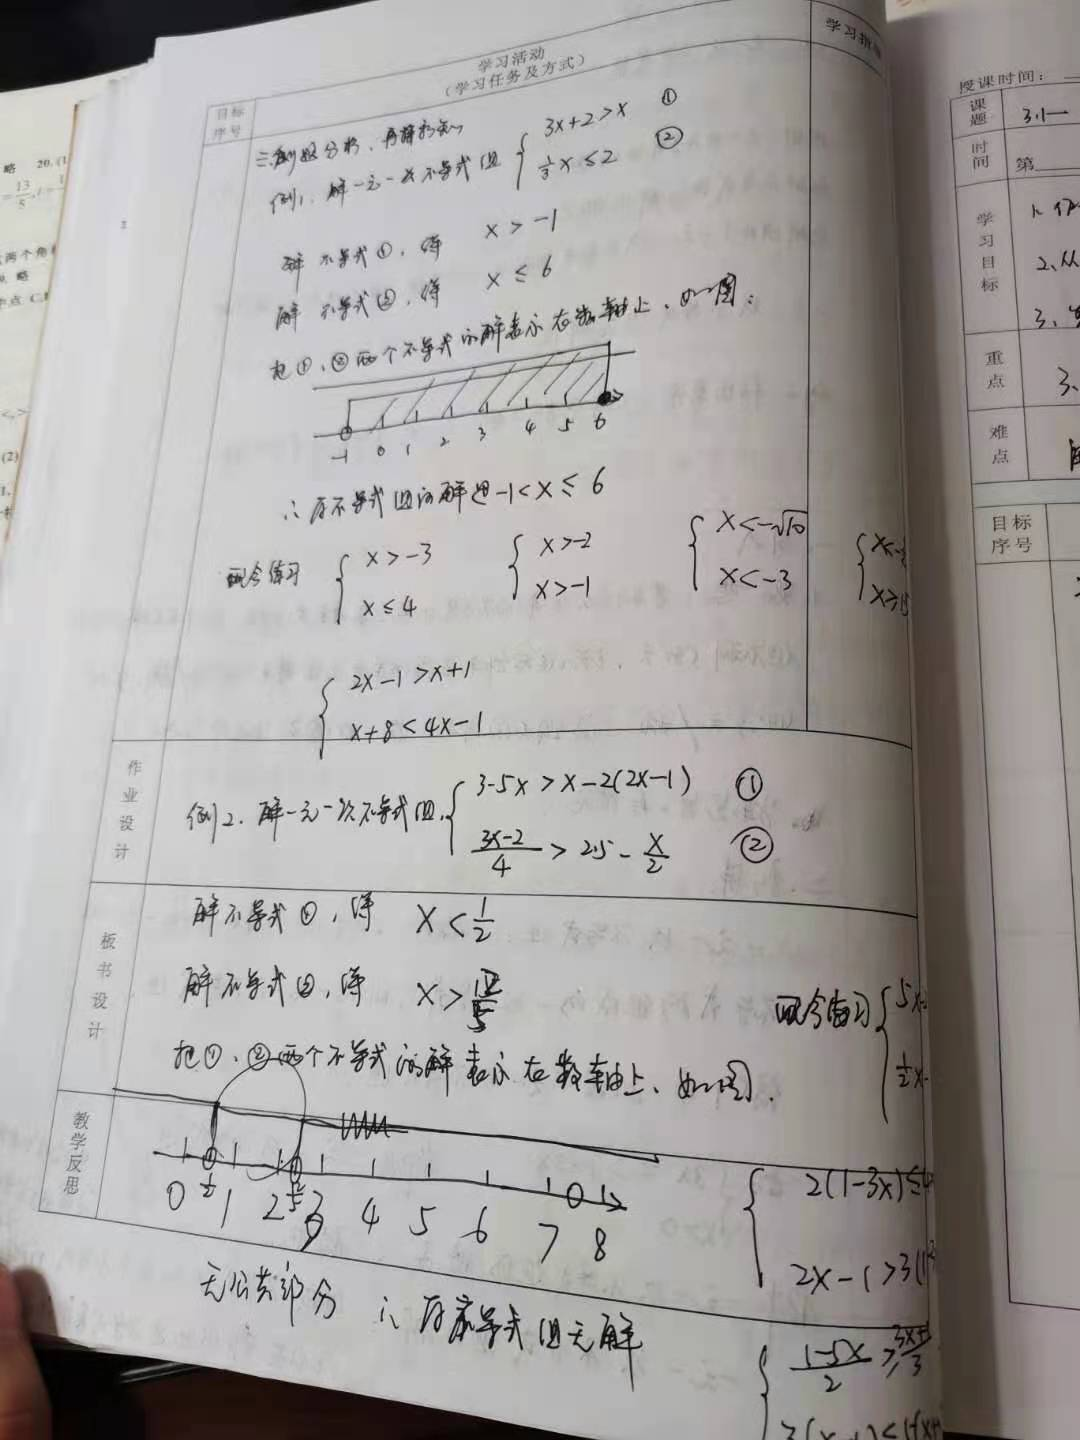 学习活动
(学习任务及方式)
学习指
目标
序号
三、例题分析、再探新知
例1、解一元一次不等式组 { 3x+2>x ①
½x≤2 ②
解不等式①,得 x>-1
解不等式②,得 x≤6
把①、②两个不等式的解表示在数轴上、如图:
-1 0 1 2 3 4 5 6
∴原不等式组的解是-1<x≤6
配合练习 { x>-3
x≤4
{ x>-2
x>-1
{ x<-√10
x<-3
{ 2x-1>x+1
x+8<4x-1
作业设计
例2、解一元一次不等式组、{ 3-5x>x-2(2x-1) ①
(3x-2)/4>2.5-x/2 ②
板书设计
解不等式①,得 x<1/2
解不等式②,得 x>12/5
配合练习 {
把①、②两个不等式的解表示在数轴上、如图.
教学反思
0 ½ 1 2 3 4 5 6 7 8
{ 2(1-3x)≤
2x-1>3(1
无公共部分 ∴原不等式组无解
{ (1-5x)/2
授课时间:
课题 3.1一
时间 第
学习目标 1、
2、从
3、
重点 3、
难点
目标
序号
略 20.(1
两个角